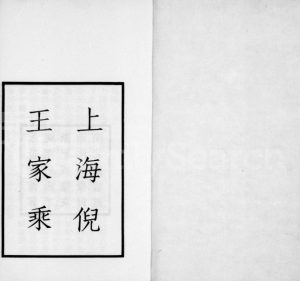 上海倪
王家乘